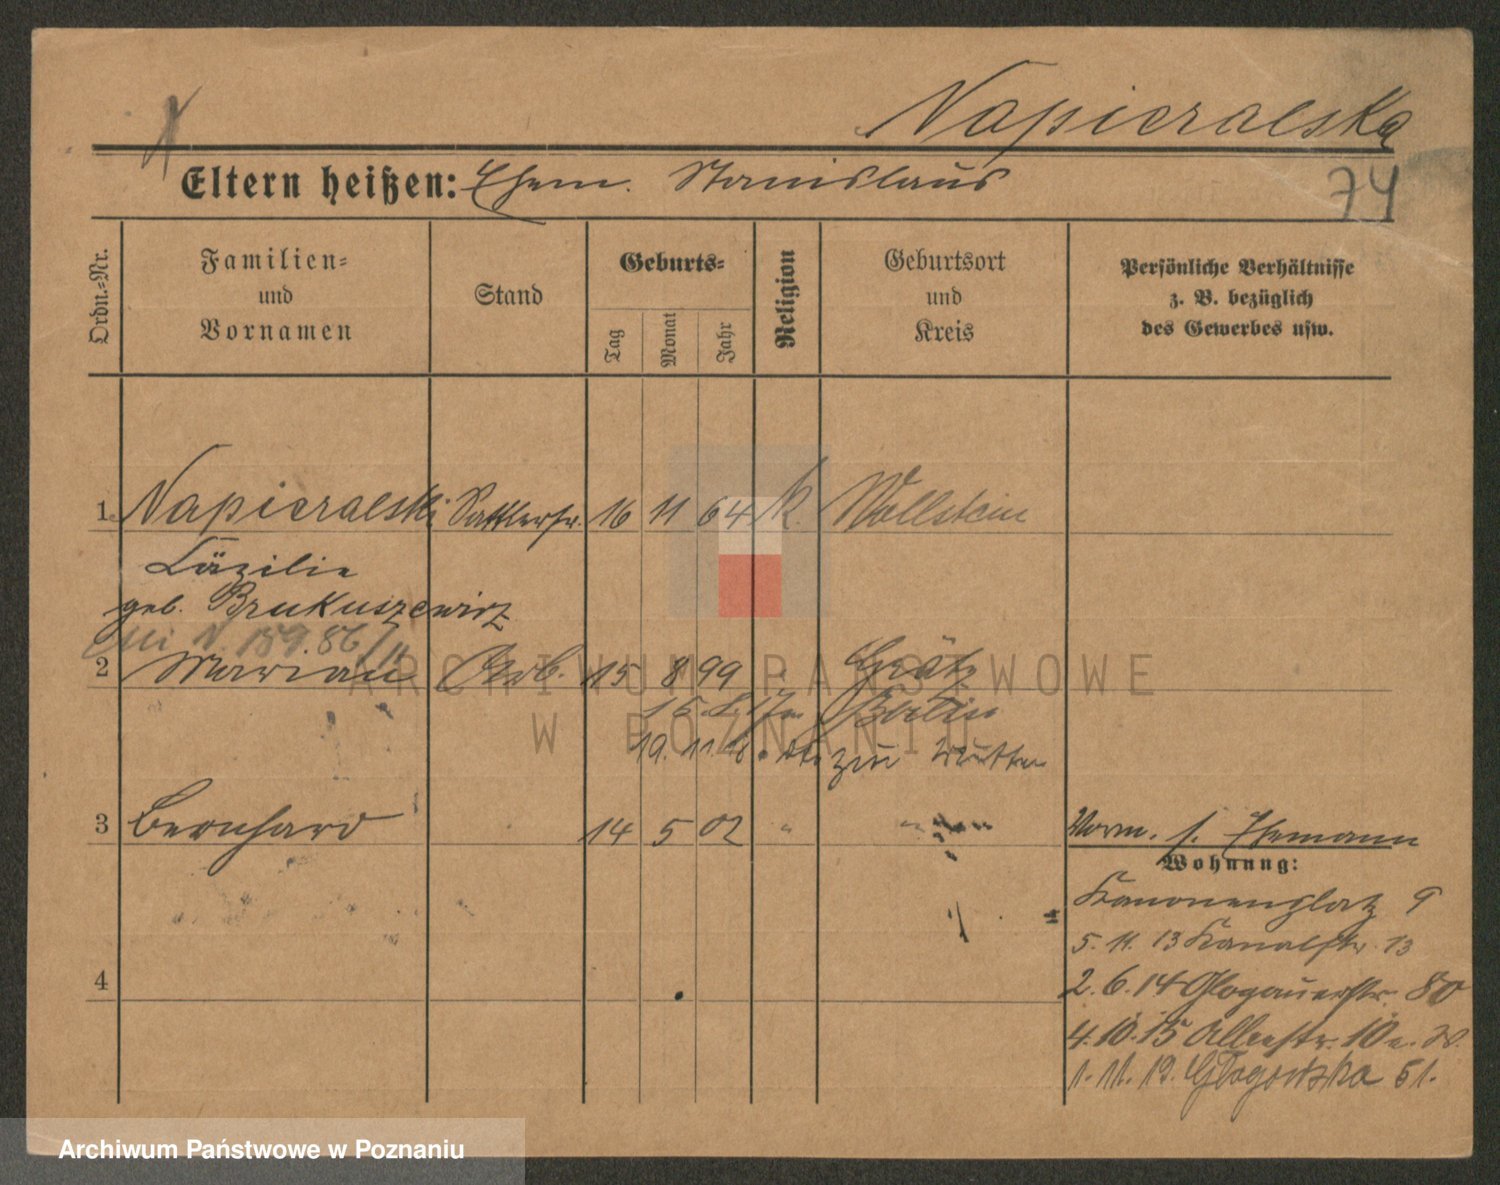 Napieralska
Eltern heißen: Ehem. Stanislaus
74
Ordn.-Nr.
Familien- und Vornamen
Stand
Geburts-
Tag
Monat
Jahr
Religion
Geburtsort und Kreis
Persönliche Verhältnisse
z. B. bezüglich
des Gewerbes usw.
1. Napieralski Sattlerfr. 16 11 64 k. Wollstein
Cäzilie
geb. Brukuszewicz
N. 159.86/11
2 Marian Arb. 15 8 99 Grätz
Berlin
19. 11. zur Mutter
3 Bernhard 14 5 02 "
Vorm. s. Ehemann
Wohnung:
Kanonenplatz 9
5. 11. 13 Kanalstr. 13
4
2. 6. 14 Glogauerstr. 80
4. 10. 15 Alleestr. 10
1. 11. 19. Głogowska 51.
ARCHIWUM PAŃSTWOWE
W POZNANIU
Archiwum Państwowe w Poznaniu